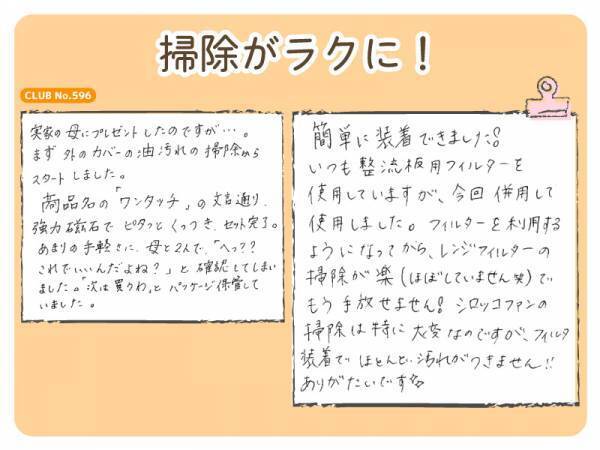 掃除がラクに！
CLUB No.596
実家の母にプレゼントしたのですが…。
まず外のカバーの油汚れの掃除から
スタートしました。
商品名の「ワンタッチ」の文言通り、
強力磁石でピタッとくっつき、セット完了。
あまりの手軽さに、母と2人で、「へっ??
これでいいんだよね?」と確認してしまい
ました。「次は買うわ」とパッケージ保管して
いました。
簡単に装着できました!
いつも整流板用フィルターを
使用していますが、今回併用して
使用しました。フィルターを利用する
ようになってから、レンジフィルターの
掃除が楽(ほぼしていません笑)で
もう手放せません! シロッコファンの
掃除は特に大変なのですが、フィルタ
装着でほとんど汚れがつきません!!
ありがたいです☆